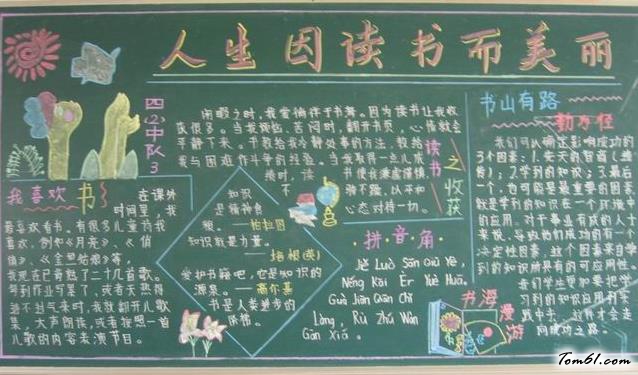 人生因读书而美丽
四(2)中队
3
闲暇之时,我爱徜徉于书海。因为读书让我收
获很多。当我烦恼、苦闷时,翻开书页,心情就会
平静下来。书教给我冷静处事的方法,教给
我与困难作斗争的经验。当我取得一点儿成
绩时,读书使我谦虚谨慎
不骄不躁,以平和
心态对待一切。
读书之收获
书山有路
勤为径
我们可以确定影响成功的
3个因素:1.先天的智商(继
传);2.学到的知识;3.最后一
个,也可能是最重要的因素
就是学到的知识在一个环境中
的应用。对于事业有成的人士
来说,导致他们成功的有一个
决定性因素,这个因素来自学
到的知识所具有的可应用性。
我们学生更加要把学
习到的知识应用到实
践中去,这样才会走
向成功之路。
我喜欢书
在课外
时间里,我
最喜欢看书。有很多儿童诗我
喜欢,例如《月亮》、《值
值》、《金兰姑娘》等,
我现在已背熟了二十几首歌。
每到作业写累了,或者天热得
透不过气来时,我就翻开儿歌
集,大声朗读,或者按照一首
儿歌的内容表演节目。
知识
是精神食
粮。——柏拉图
知识就是力量。
——培根(英)
爱护书籍吧,它是知识的
源泉。——高尔基
书是人类进步的
阶梯。
拼·音·角
Jǐ Luò Sān Qiū Yè,
Néng Kāi Èr Yuè Huā.
Guò Jiāng Qiān Chǐ
Làng, Rù Zhú Wàn
Gān Xiá.
书海漫游
Tom61.com